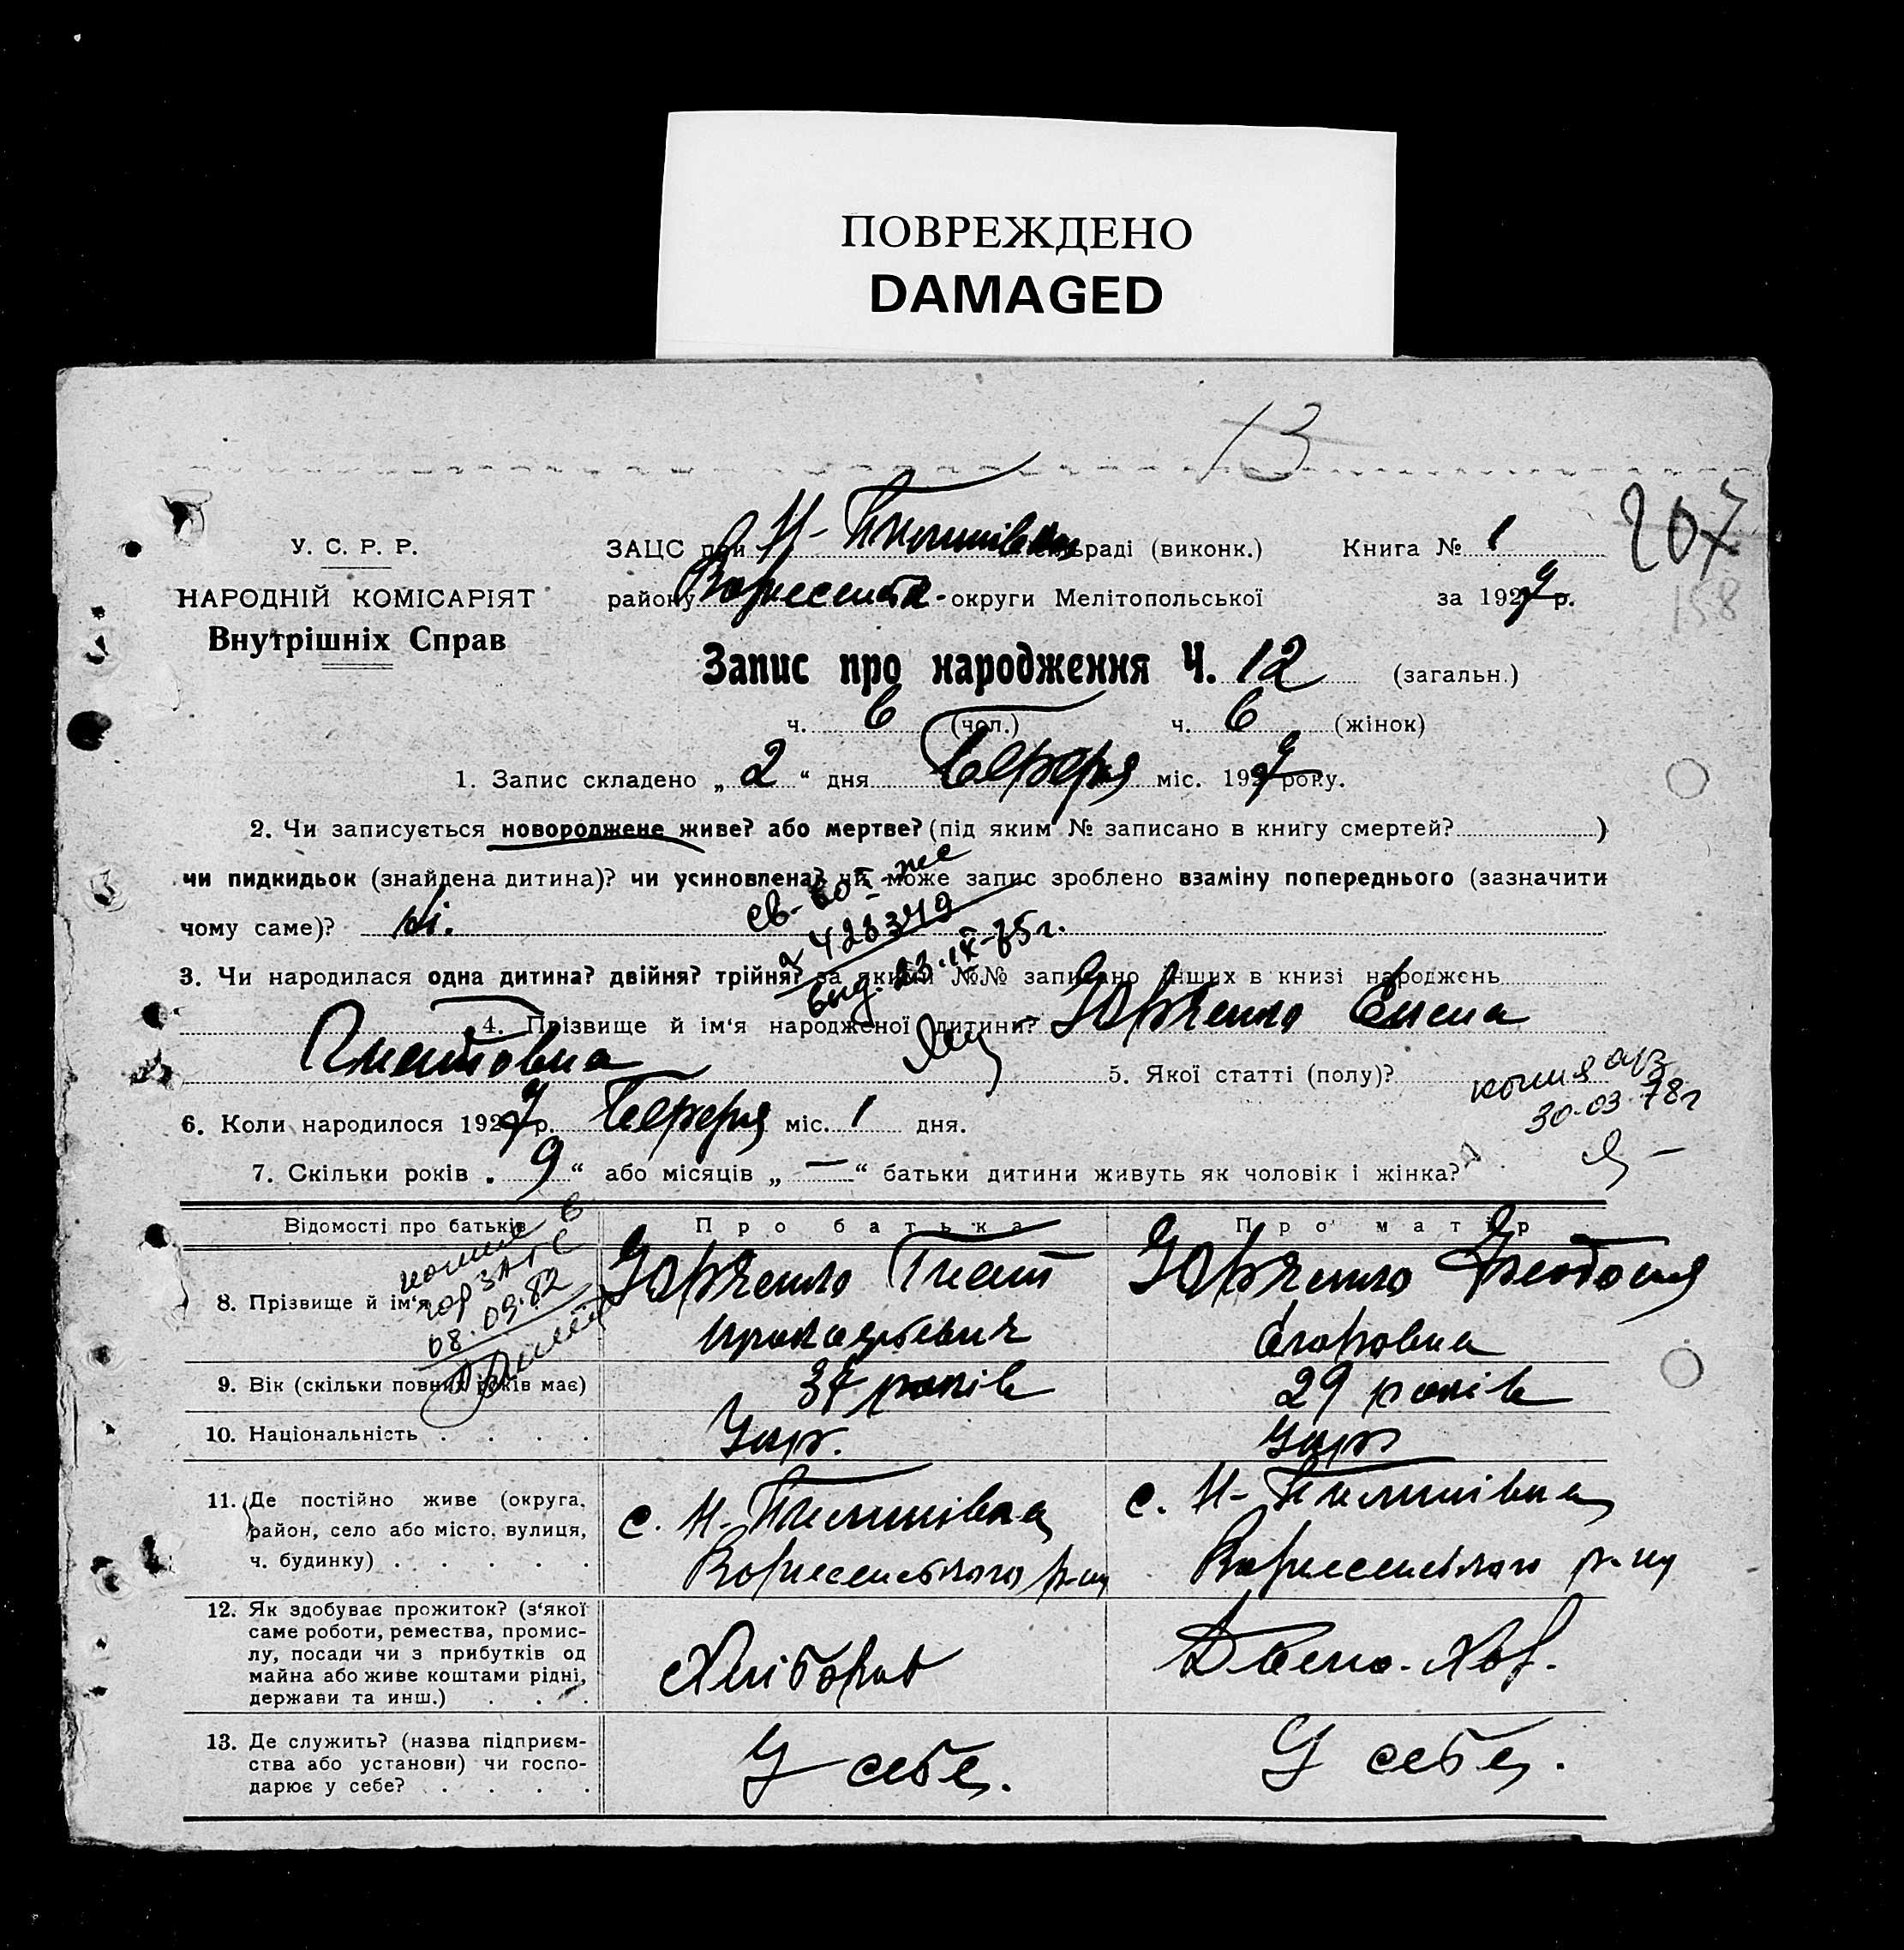 ПОВРЕЖДЕНО
DAMAGED
13
207
158
У. С. Р. Р.
НАРОДНІЙ КОМІСАРІЯТ
Внутрішніх Справ
ЗАЦС при Н- раді (виконк.) Книга № 1
району округи Мелітопольської за 1929 р.
Запис про народження Ч. 12 (загальн.)
ч. 6 (чол.) ч. 6 (жінок)
1. Запис складено „ 2 “ дня міс. 1929 року.
2. Чи записується новороджене живе? або мертве? (під яким № записано в книгу смертей? )
чи пидкидьок (знайдена дитина)? чи усиновлена? чи може запис зроблено взаміну попереднього (зазначити
чому саме)? ні.
3. Чи народилася одна дитина? двійня? трійня? за якими №№ записано інших в книзі народжень
4. Прізвище й ім'я народженої дитини? Юрченко Елена
Гнатовна 5. Якої статті (полу)?
св-во
428349
выд. 23.IX-75г.
копия
30-03-78г
6. Коли народилося 1929 р. міс. 1 дня.
7. Скільки років „ 9 “ або місяців „ — “ батьки дитини живуть як чоловік і жінка?
Відомості про батьків Про батька Про матір
копия в
горЗАГС
08.09.82
8. Прізвище й ім'я Юрченко Гнат Юрченко Феодосия
Егоровна
9. Вік (скільки повних років має) 37 років 29 років
10. Національність . . . . Укр. Укр
11. Де постійно живе (округа, район, село або місто, вулиця, ч. будинку) . . . . . с. Н- с. Н-
р-ну р-ну
12. Як здобуває прожиток? (з'якої
саме роботи, ремества, промис-
лу, посади чи з прибутків од
майна або живе коштами рідні,
держави та инш.) . . . Хлібороб Домо-Хоз.
13. Де служить? (назва підприєм-
ства або установи) чи госпо-
дарює у себе? . . . . У себе. У себе.